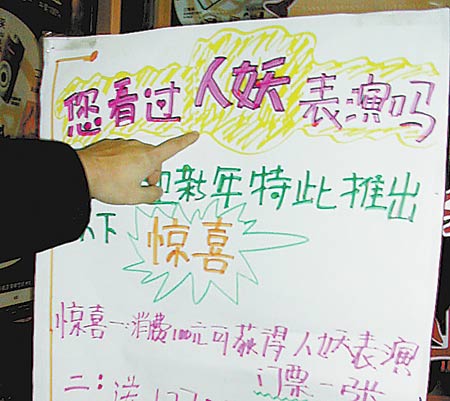 您看过人妖表演吗
迎新年特此推出
以下 惊喜
惊喜一:消费100元可获得人妖表演
门票一张
二:送